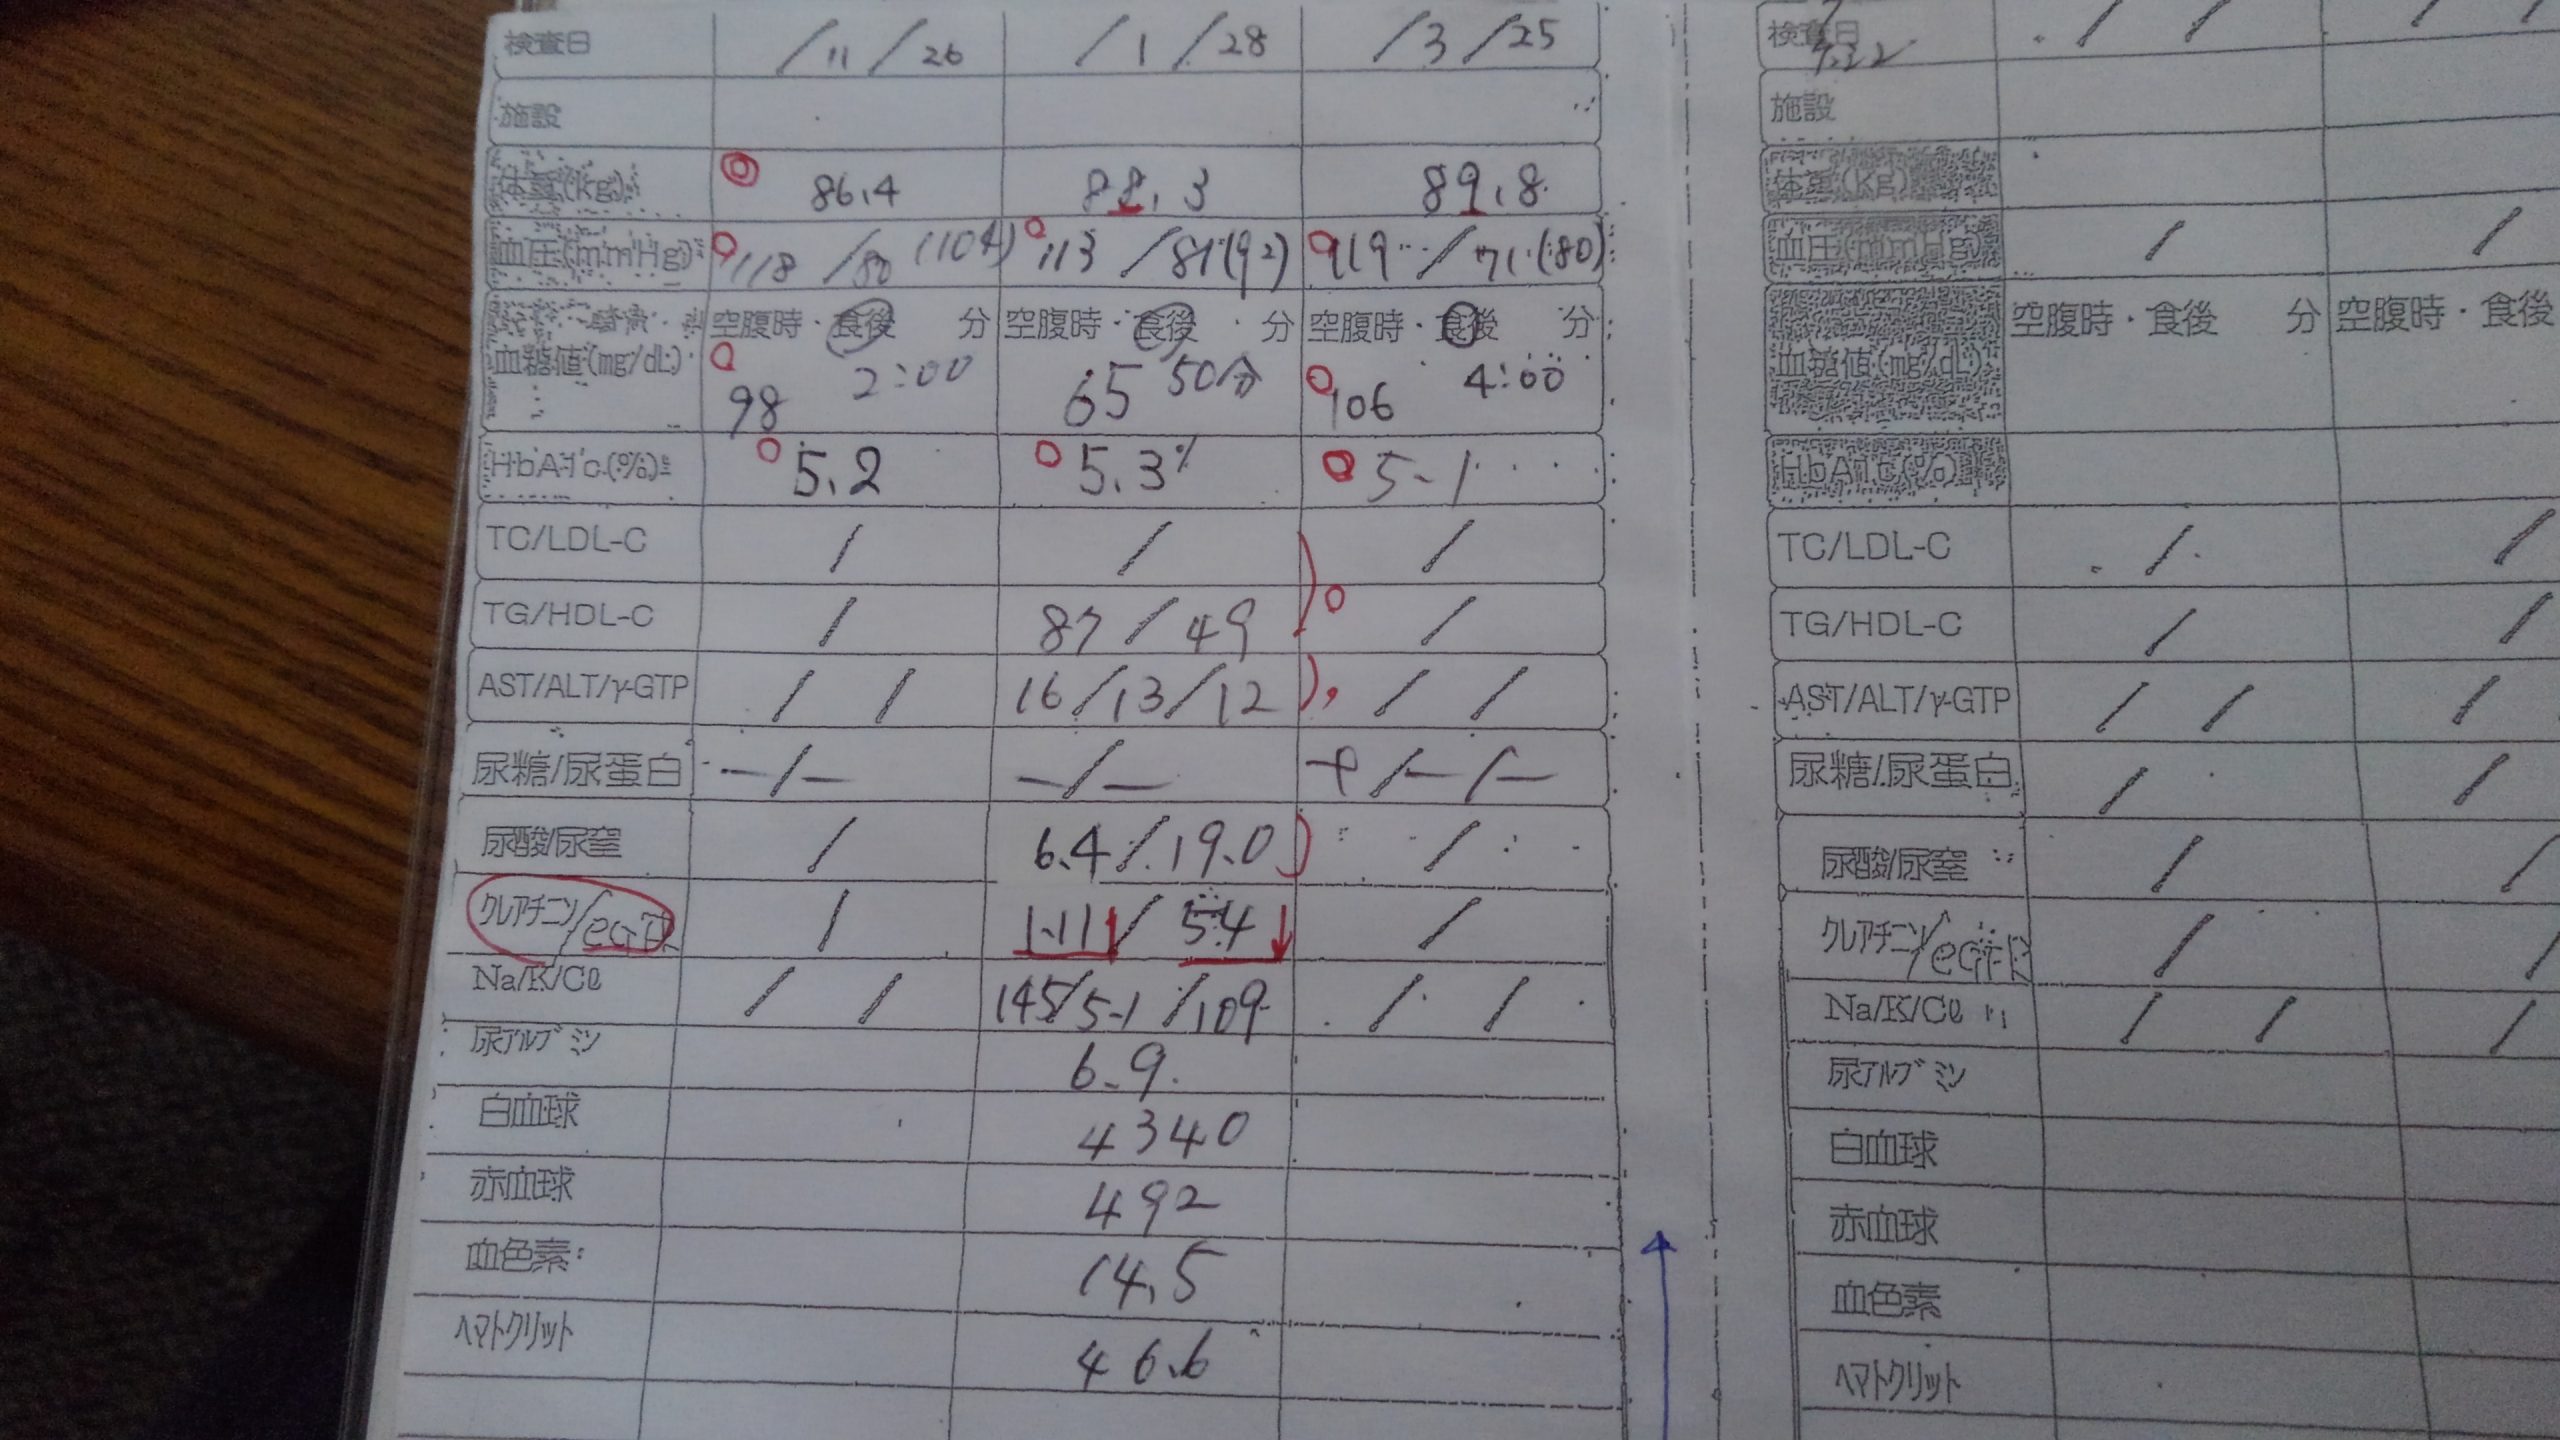 検査日 /11/26 /1/28 /3/25
施設
体重(kg) 86.4 88.3 89.8
血圧(mmHg) 118/80(104) 113/81(92) 119/71(80)
空腹時・食後 分 空腹時・食後 分 空腹時・食後 分
血糖値(mg/dL) 98 2:00 65 50分 106 4:00
HbA1c(%) 5.2 5.3% 5-1
TC/LDL-C / / /
TG/HDL-C / 87/49 /
AST/ALT/γ-GTP / / 16/13/12 / /
尿糖/尿蛋白 -/- -/- +/-/-
尿酸/尿窒 / 6.4/19.0 /
クレアチニン/eGFR / 1.11/54 /
Na/K/Cl / / 145/5-1/109 / /
尿アルブミン 6.9
白血球 4340
赤血球 492
血色素 14.5
ヘマトクリット 46.6
検査日 / / / /
施設
体重(kg)
血圧(mmHg) / /
空腹時・食後 分 空腹時・食後
血糖値(mg/dL)
HbA1c(%)
TC/LDL-C / /
TG/HDL-C / /
AST/ALT/γ-GTP / / /
尿糖/尿蛋白 / /
尿酸/尿窒 / /
クレアチニン/eGFR / /
Na/K/Cl / / /
尿アルブミン
白血球
赤血球
血色素
ヘマトクリット